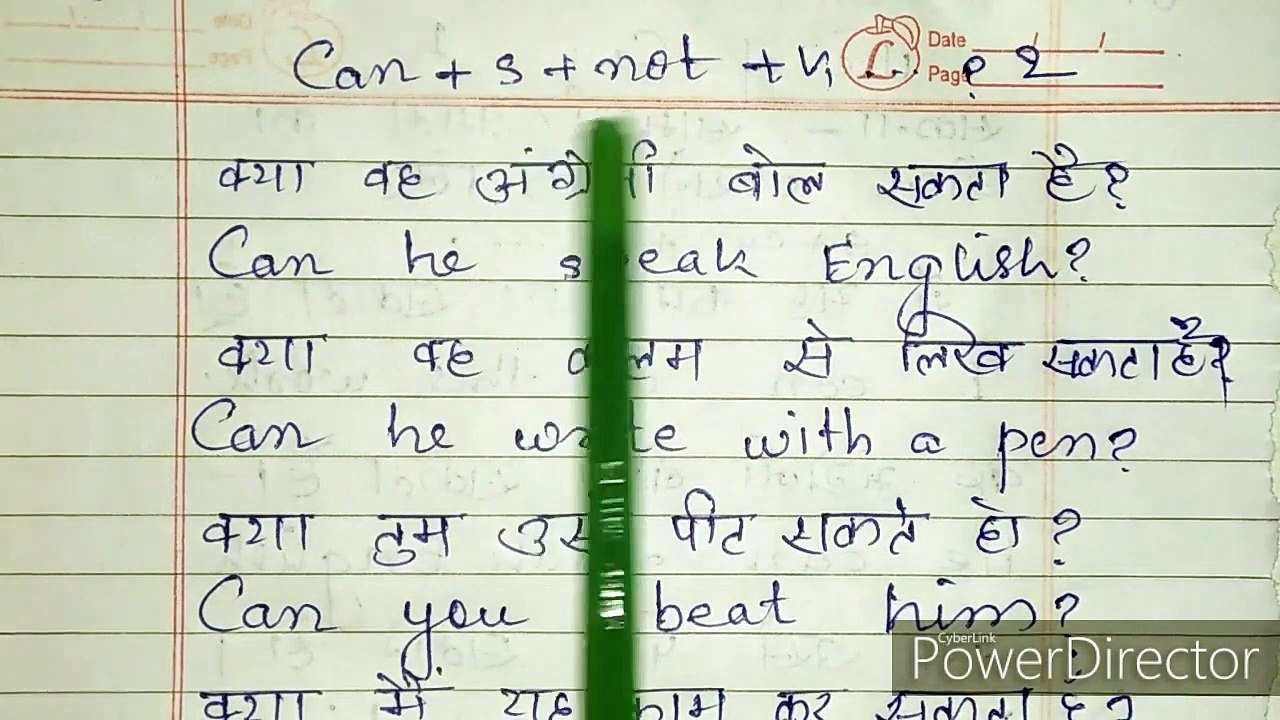 Can + s + not + V₁ ? 2
Date
Page
क्या वह बोल सकता है?
Can he speak English?
क्या वह कलम से लिख सकता है?
Can he write with a pen?
क्या तुम उसे पीट सकते हो?
Can you beat him?
क्या मैं यह काम कर सकता
CyberLink
PowerDirector